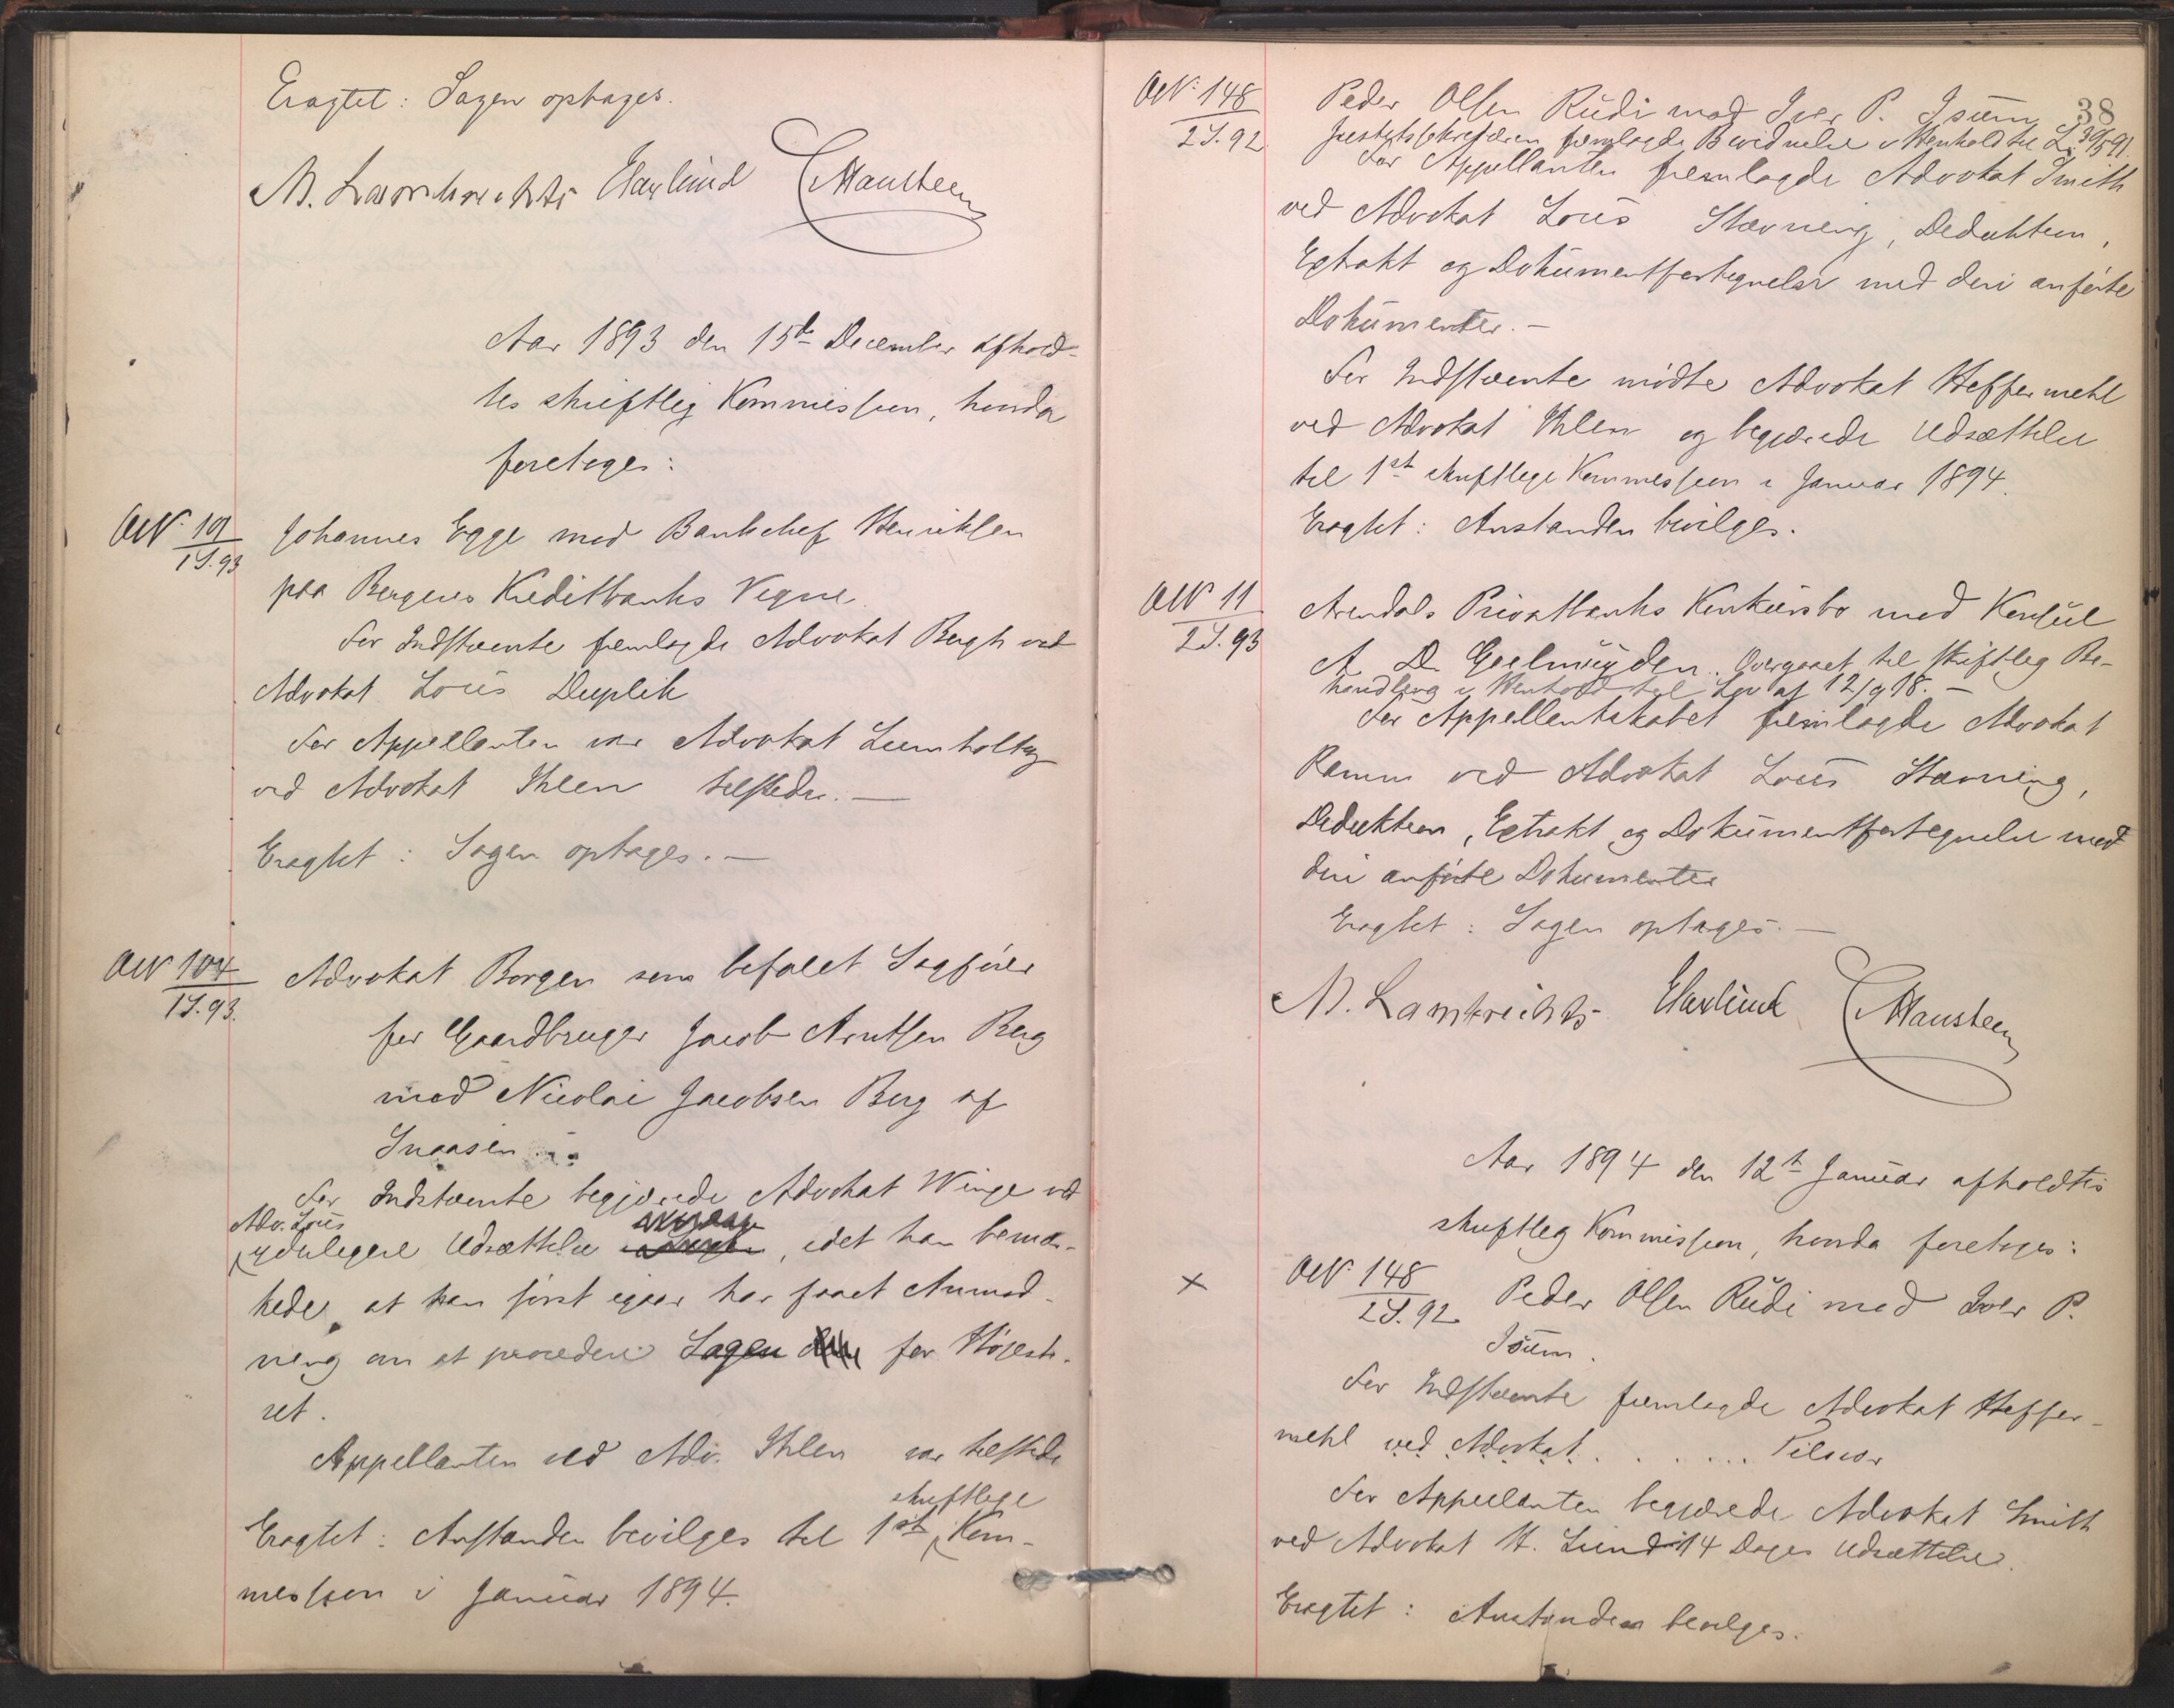 Eragtet: Sagen optages.
M. Lambrechts Hazlund EHansteen
Aar 1893 den 15de December afhold-
tes skriftlig Kommission, hvorda
foretoges:
101
1S.93
Johannes Egge mod Bankchef Henriksen
paa Bergens Kreditbanks Vegne.
For Indstevnte fremlagde Advokat Bergh ved
Advokat Loüs Duplik
For Appellanten var Advokat Lumholtz
ved Advokat Ihlen tilstede. —
Eragtet: Sagen optages. —
104
1S.93.
Advokat Borgen som befalet Sagfører
for Gaardbruger Jacob Arntsen Berg
mod Nicolai Jacobsen Berg af
Snaasen
For Indstevnte begjærede Advokat Winge ved
Adv. Loüs
yderligere Udsættelse, idet han bemær-
kede, at han først igaar har faaet Anmod-
ning om at procedere Sagen for Højeste-
ret.
Appellanten ved Adv. Ihlen var tilstede
skriftlige
Eragtet: Anstanden bevilges til 1ste Kom-
mission i Januar 1894.
38
No 148
2S.92
Peder Olsen Rudi mod Iver P. Isum
Justitssekretæren fremlagde Bevidnelse i Henhold til L. 30/5 91.
For Appellanten fremlagde Advokat Smith
ved Advokat Loüs Stævning, Deduktion,
Extrakt og Dokümentfortegnelse med deri anførte
Dokümenter. —
For Indstevnte mødte Advokat Heffermehl
ved Advokat Ihlen og begjærede Udsættelse
til 1ste skriftlige Kommission i Januar 1894.
Eragtet: Anstanden bevilges.
11
2S.93
Arendals Privatbanks Konkürsbo mod Konsül
A. D. Geelmuyden. Overgaaet til skriftlig Be-
handling i Henhold til Lov af 12/9 18. —
For Appellantskabet fremlagde Advokat
Ramm ved Advokat Loüs Stævning,
Deduktion, Extrakt og Dokümentfortegnelse med
deri anførte Dokumenter
Eragtet: Sagen optages. —
M. Lambrechts Hazlund EHansteen
Aar 1894 den 12te Januar afholdtes
skriftlig Kommission, hvorda foretoges:
x
No 148
2S.92
Peder Olsen Rüdi mod Iver P.
Isüm.
For Indstevnte fremlagde Advokat Heffer-
mehl ved Advokat . . . . . . Tilsvar
For Appellanten begjærede Advokat Smith
ved Advokat H. Lund 14 Dages Udsættelse.
Eragtet: Anstanden bevilges.